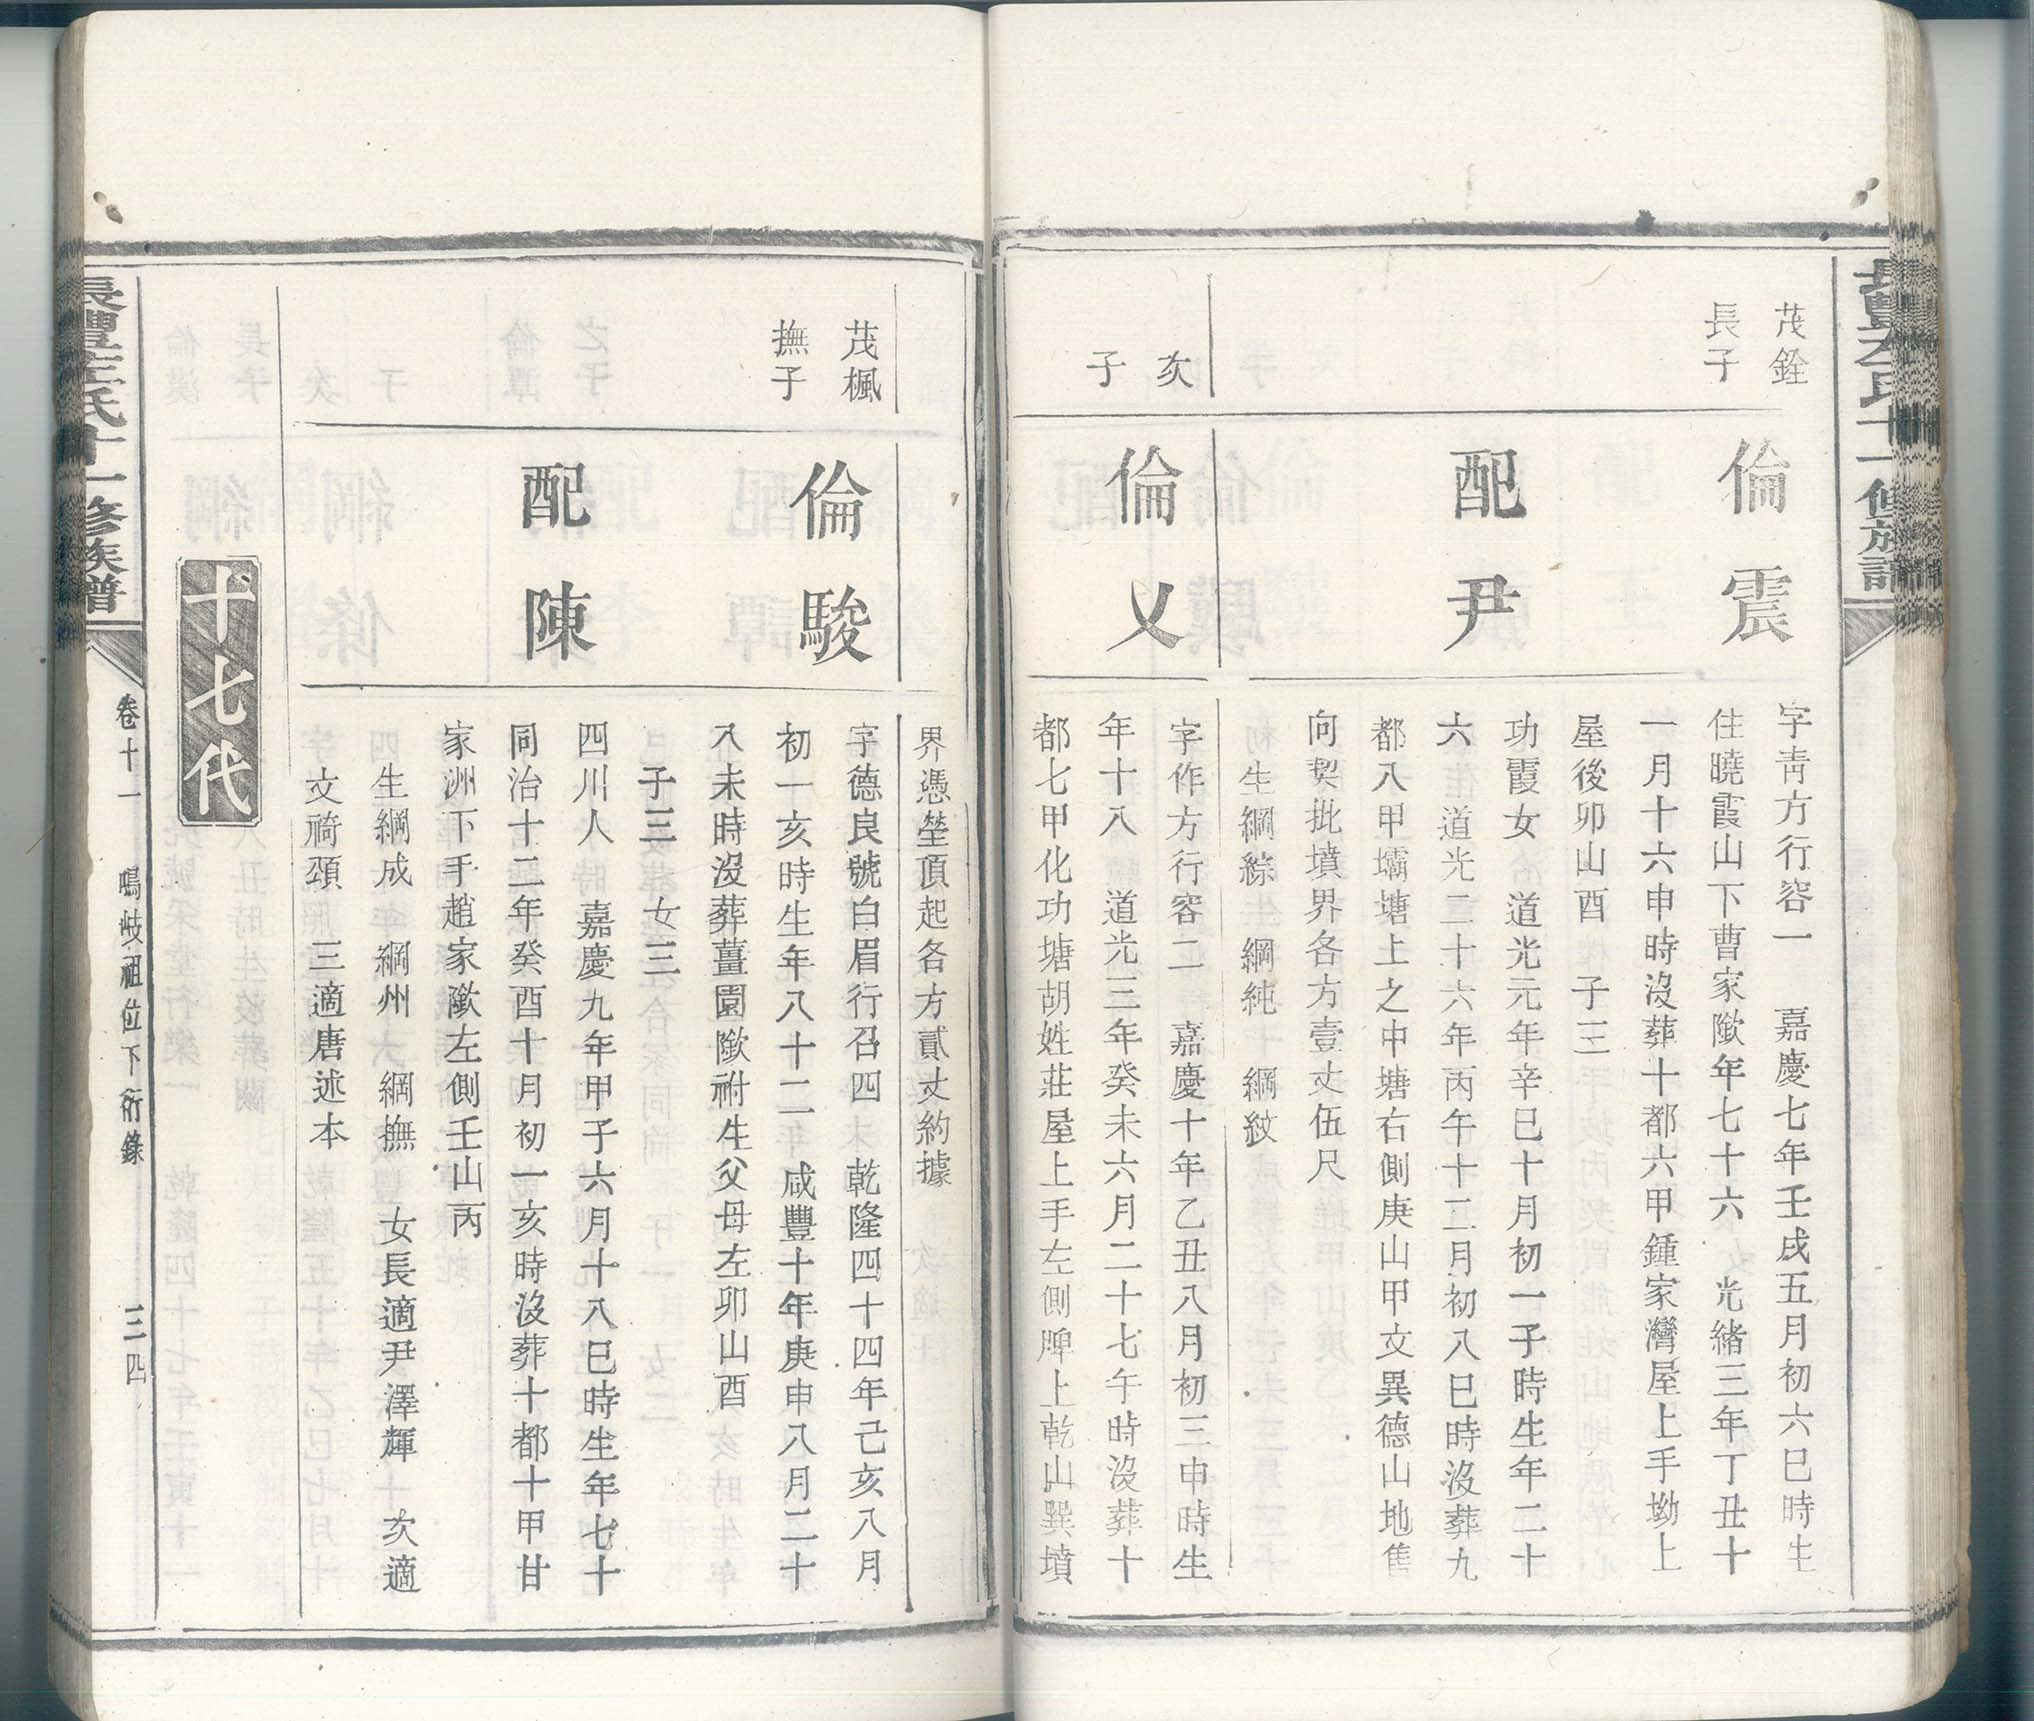 茂銓
長子
倫震
字青方行容一 嘉慶七年壬戌五月初六巳時生
住曉霞山下曹家歘年七十六 光緒三年丁丑十
一月十六申時沒葬十都六甲鍾家灣屋上手坳上
屋後卯山酉 子三
配尹
功霞女 道光元年辛巳十月初一子時生年二十
六 道光二十六年丙午十二月初八巳時沒葬九
都八甲壩塘上之中塘右側庚山甲文異德山地售
向契批墳界各方壹丈伍尺
生綱綜 綱純 綱紋
次
子
倫乂
字作方行容二 嘉慶十年乙丑八月初三申時生
年十八 道光三年癸未六月二十七午時沒葬十
都七甲化功塘胡姓莊屋上手左側陴上乾山巽墳
界憑塋頂起各方貳丈約據
茂楓
撫子
倫駿
字德良號白眉行召四 乾隆四十四年己亥八月
初一亥時生年八十二 咸豐十年庚申八月二十
八未時沒葬薑園歘祔生父母左卯山酉
子三 女三
配陳
四川人 嘉慶九年甲子六月十八巳時生年七十
同治十二年癸酉十月初一亥時沒葬十都十甲甘
家洲下手趙家歘左側壬山丙
生綱成 綱州 綱撫 女長適尹澤輝 次適
文禕頌 三適唐述本
十七代
長豐左氏十一修族譜
卷十一 鳴岐祖位下衍錄 三四